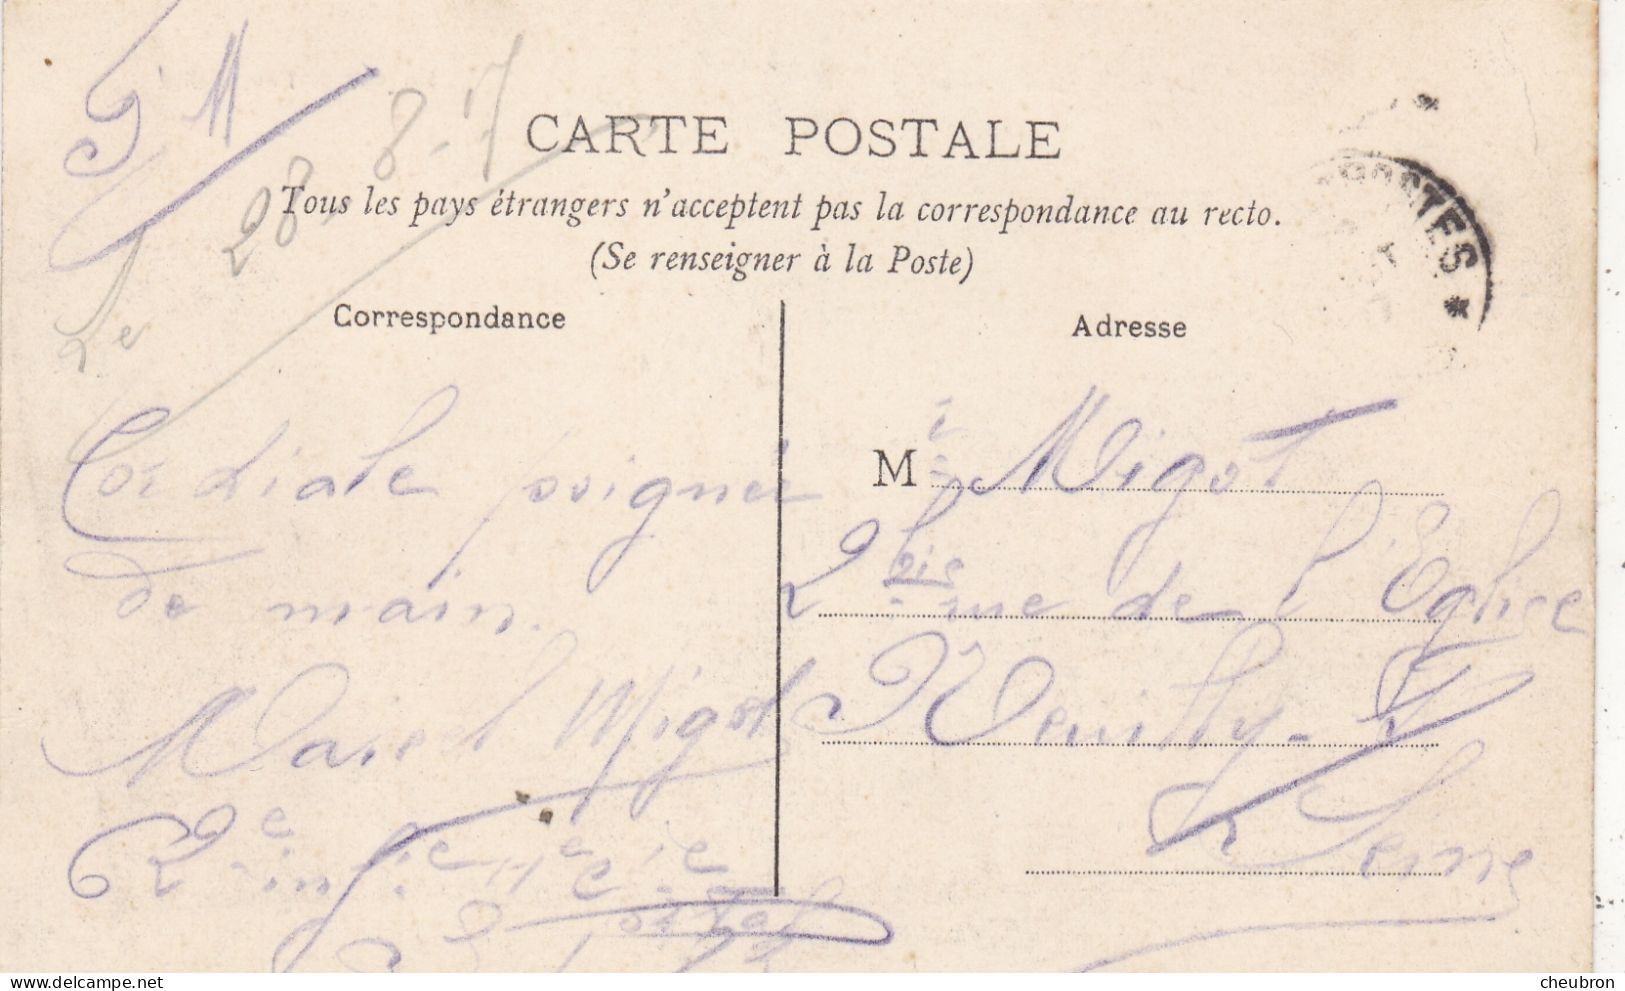 F M
28-8-17
CARTE POSTALE
Tous les pays étrangers n'acceptent pas la correspondance au recto.
(Se renseigner à la Poste)
Correspondance
Cordiale poignée
de main.
Marcel Migot
2e infie 11e Cie
Adresse
M Migot
2 bis rue de l'Eglise
Neuilly-S/
Seine
POSTES *
delcampe.net
cheubron